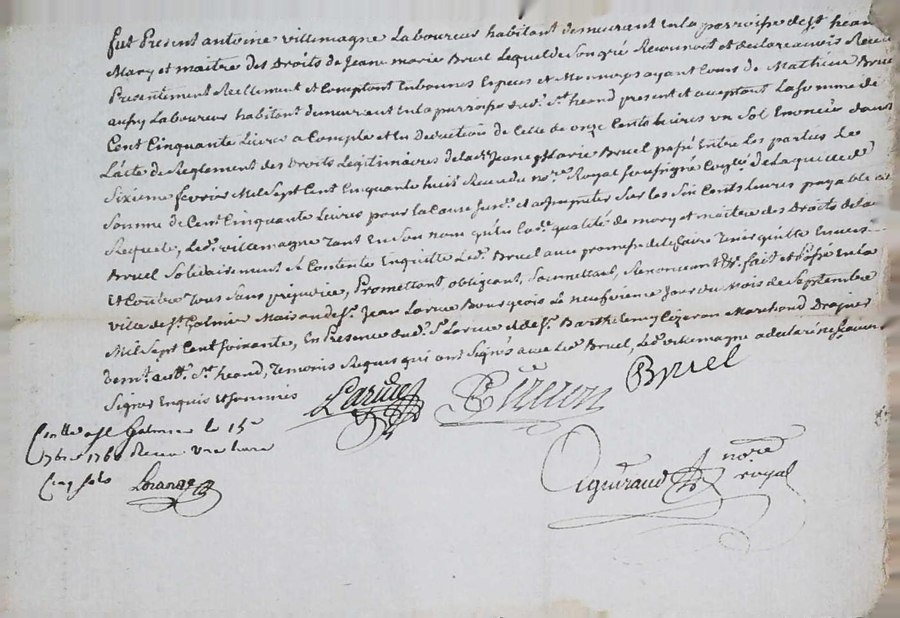 fut Present antoine villemagne Laboureur habitant demeurant en la parroisse de St. héand
Mary et maitre des Droits de Jeane marie Bruel Lequel de Son gré Reconnoit et declare avoir Receu
Presentement Réellement et Comptant En bonnes Espèces et Monnoyes ayant Cours de Mathieu Bruel
Laboureur habitant demeurant En la parroisse dud. St. héand present et aceptant La somme de
Cent Cinquante Livres a Compte et En Deduction de Celle de onze Cents Livres un Sol Enoncée dans
L'acte de Reglement des Droits Légitimaires de lad. Jeane Marie Bruel passé Entre Les parties Le
Sixieme fevrier Mil Sept Cent Cinquante huit Receu du nore. Royal Soussigné de Laquelle
Somme de Cent Cinquante Livres pour la Cause Susd. et a Imputer Sur Les Six Cents Livres payable
Requete, Led. villemagne Tant En Son nom qu'en lad. qualité de mary et maitre des Droits de la
Bruel Solidairement S'é Contente En quitte Led. Bruel avec promesse de le faire Tenir quitte Envers
Et Contre Tous Sans préjudice, Promettant, obligeant, Soumettant, Renonçant &c. fait et Passé En la
ville de St. Galmier Maison de Sr. Jean Larue Bourgeois Le neufvieme Jour du Mois de Septembre
Mil Sept Cent Soixante, En Presence dud. Sr. Larue et de Sr. Barthelemy Cizeron Marchand Drapier
demt. aud. St. héand, Temoins Requis qui ont Signés avec Led. Bruel, Led. villemagne a declaré ne sçavoir
Signer Enquis et Sommés
Larue Cizeron Bruel
Conllé a St Galmier le 15e
7bre 1760 Receu une livre
Cinq sols
Aiguiraud nore.
royal